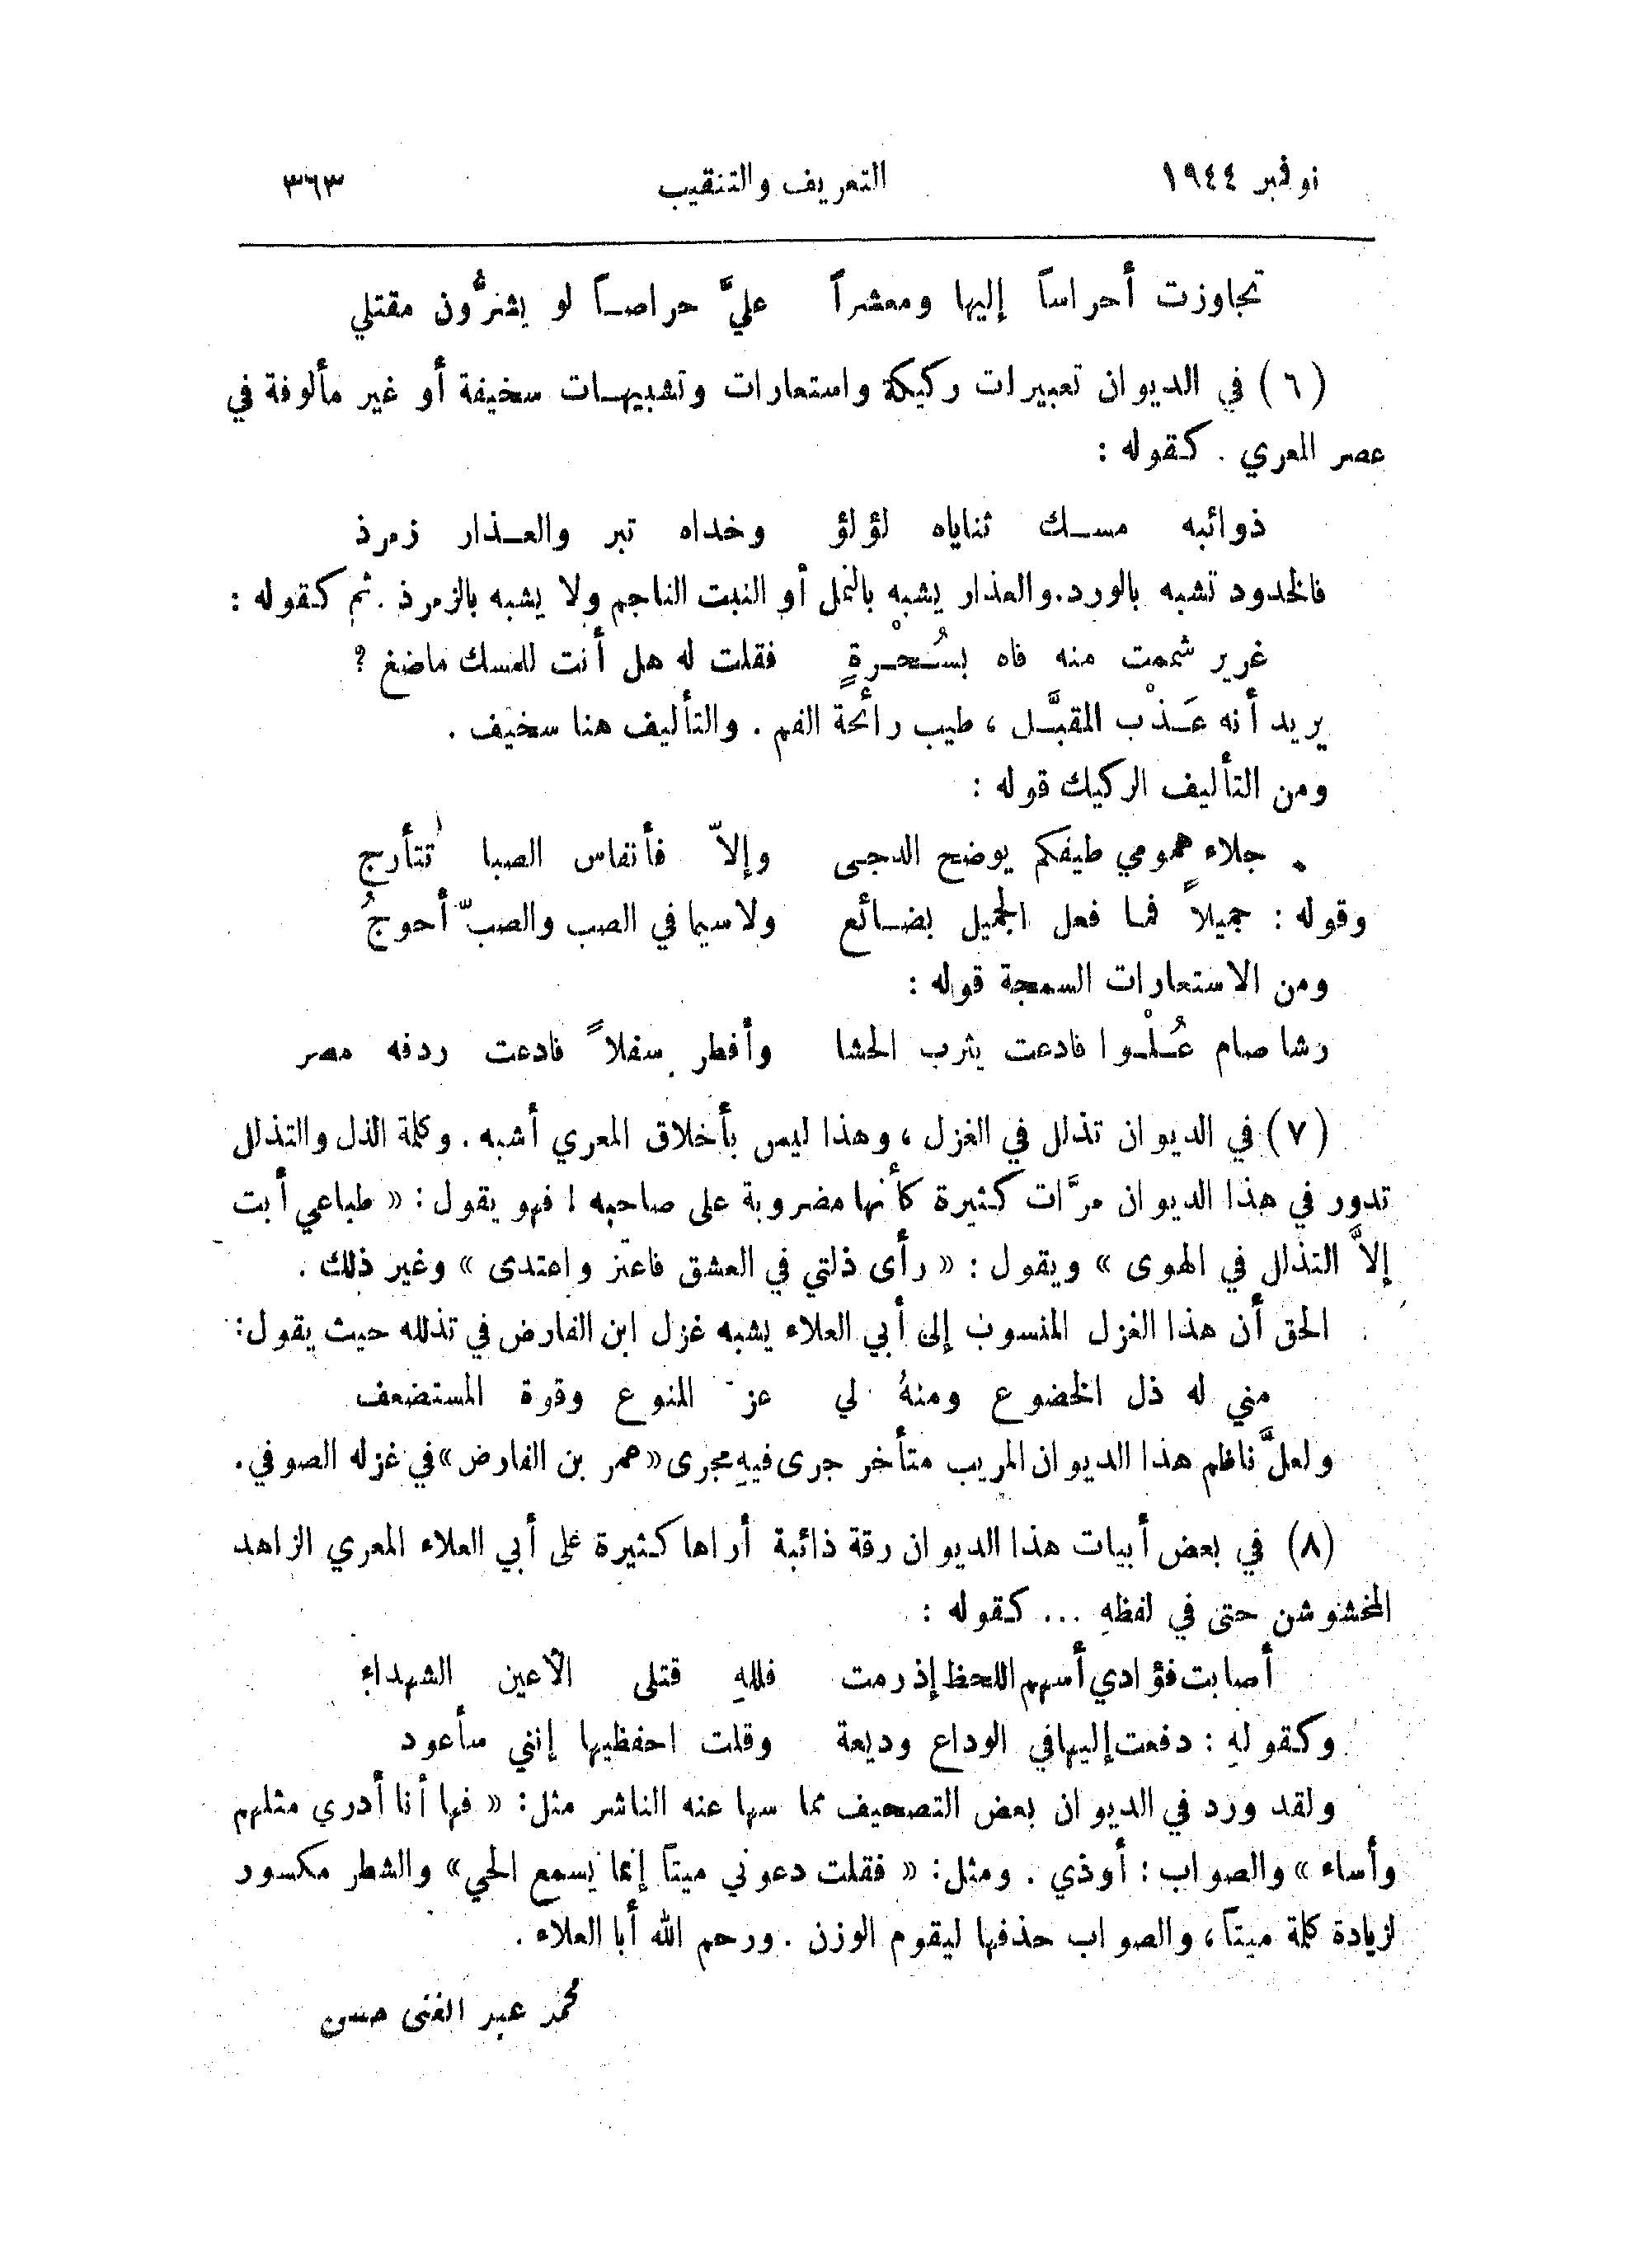 نوفمبر ١٩٤٤ التعريف والتنقيب ٣٦٣
تجاوزت أحراساً إليها ومعشراً عليَّ حراصاً لو يشرُّون مقتلي
(٦) في الديوان تعبيرات ركيكة واستعارات وتشبيهات سخيفة أو غير مألوفة في
عصر المعري . كقوله :
ذوائبه مسك ثناياه لؤلؤ وخداه تبر والعذار زمرذ
فالخدود تشبه بالورد. والعذار يشبه بالنمل أو النبت الناجم ولا يشبه بالزمرذ . ثم كقوله :
غرير شممت منه فاه بسُحْرةٍ فقلت له هل أنت للمسك ماضغ ؟
يريد أنه عَذْب المقبَّل ، طيب رائحة الفم . والتأليف هنا سخيف .
ومن التأليف الركيك قوله :
جلاء همومي طيفكم يوضح الدجى وإلاّ فأنفاس الصبا تتأرج
وقوله : جميلاً فما فعل الجميل بضائع ولاسيما في الصب والصبّ أحوجُ
ومن الاستعارات السمجة قوله :
رشا صام عُلْوا فادعت يثرب الحشا وأفطر سفلاً فادعت ردفه مصر
(٧) في الديوان تذلل في الغزل ، وهذا ليس بأخلاق المعري أشبه . وكلمة الذل والتذلل
تدور في هذا الديوان مرَّات كثيرة كأنها مضروبة على صاحبه ! فهو يقول : « طباعي أبت
إلاَّ التذلل في الهوى » ويقول : « رأى ذلتي في العشق فاعتز واعتدى » وغير ذلك .
الحق أن هذا الغزل المنسوب إلى أبي العلاء يشبه غزل ابن الفارض في تذلله حيث يقول :
مني له ذل الخضوع ومنهُ لي عز المنوع وقوة المستضعف
ولعلَّ ناظم هذا الديوان المريب متأخر جرى فيهِ مجرى «عمر بن الفارض» في غزله الصوفي .
(٨) في بعض أبيات هذا الديوان رقة ذائبة أراها كثيرة على أبي العلاء المعري الزاهد
المخشوشن حتى في لفظهِ ... كقوله :
أصابت فؤادي أسهم اللحظ إذ رمت فللهِ قتلى الأعين الشهداءِ
وكقولهِ : دفعت إليها في الوداع وديعة وقلت احفظيها إنني سأعود
ولقد ورد في الديوان بعض التصحيف مما سها عنه الناشر مثل : « فها أنا أدري مثلهم
وأساء » والصواب : أوذي . ومثل : « فقلت دعوني ميتاً إنما يسمع الحي » والشطر مكسور
لزيادة كلمة ميتاً ، والصواب حذفها ليقوم الوزن . ورحم الله أبا العلاء .
محمد عبد الغنى حسن